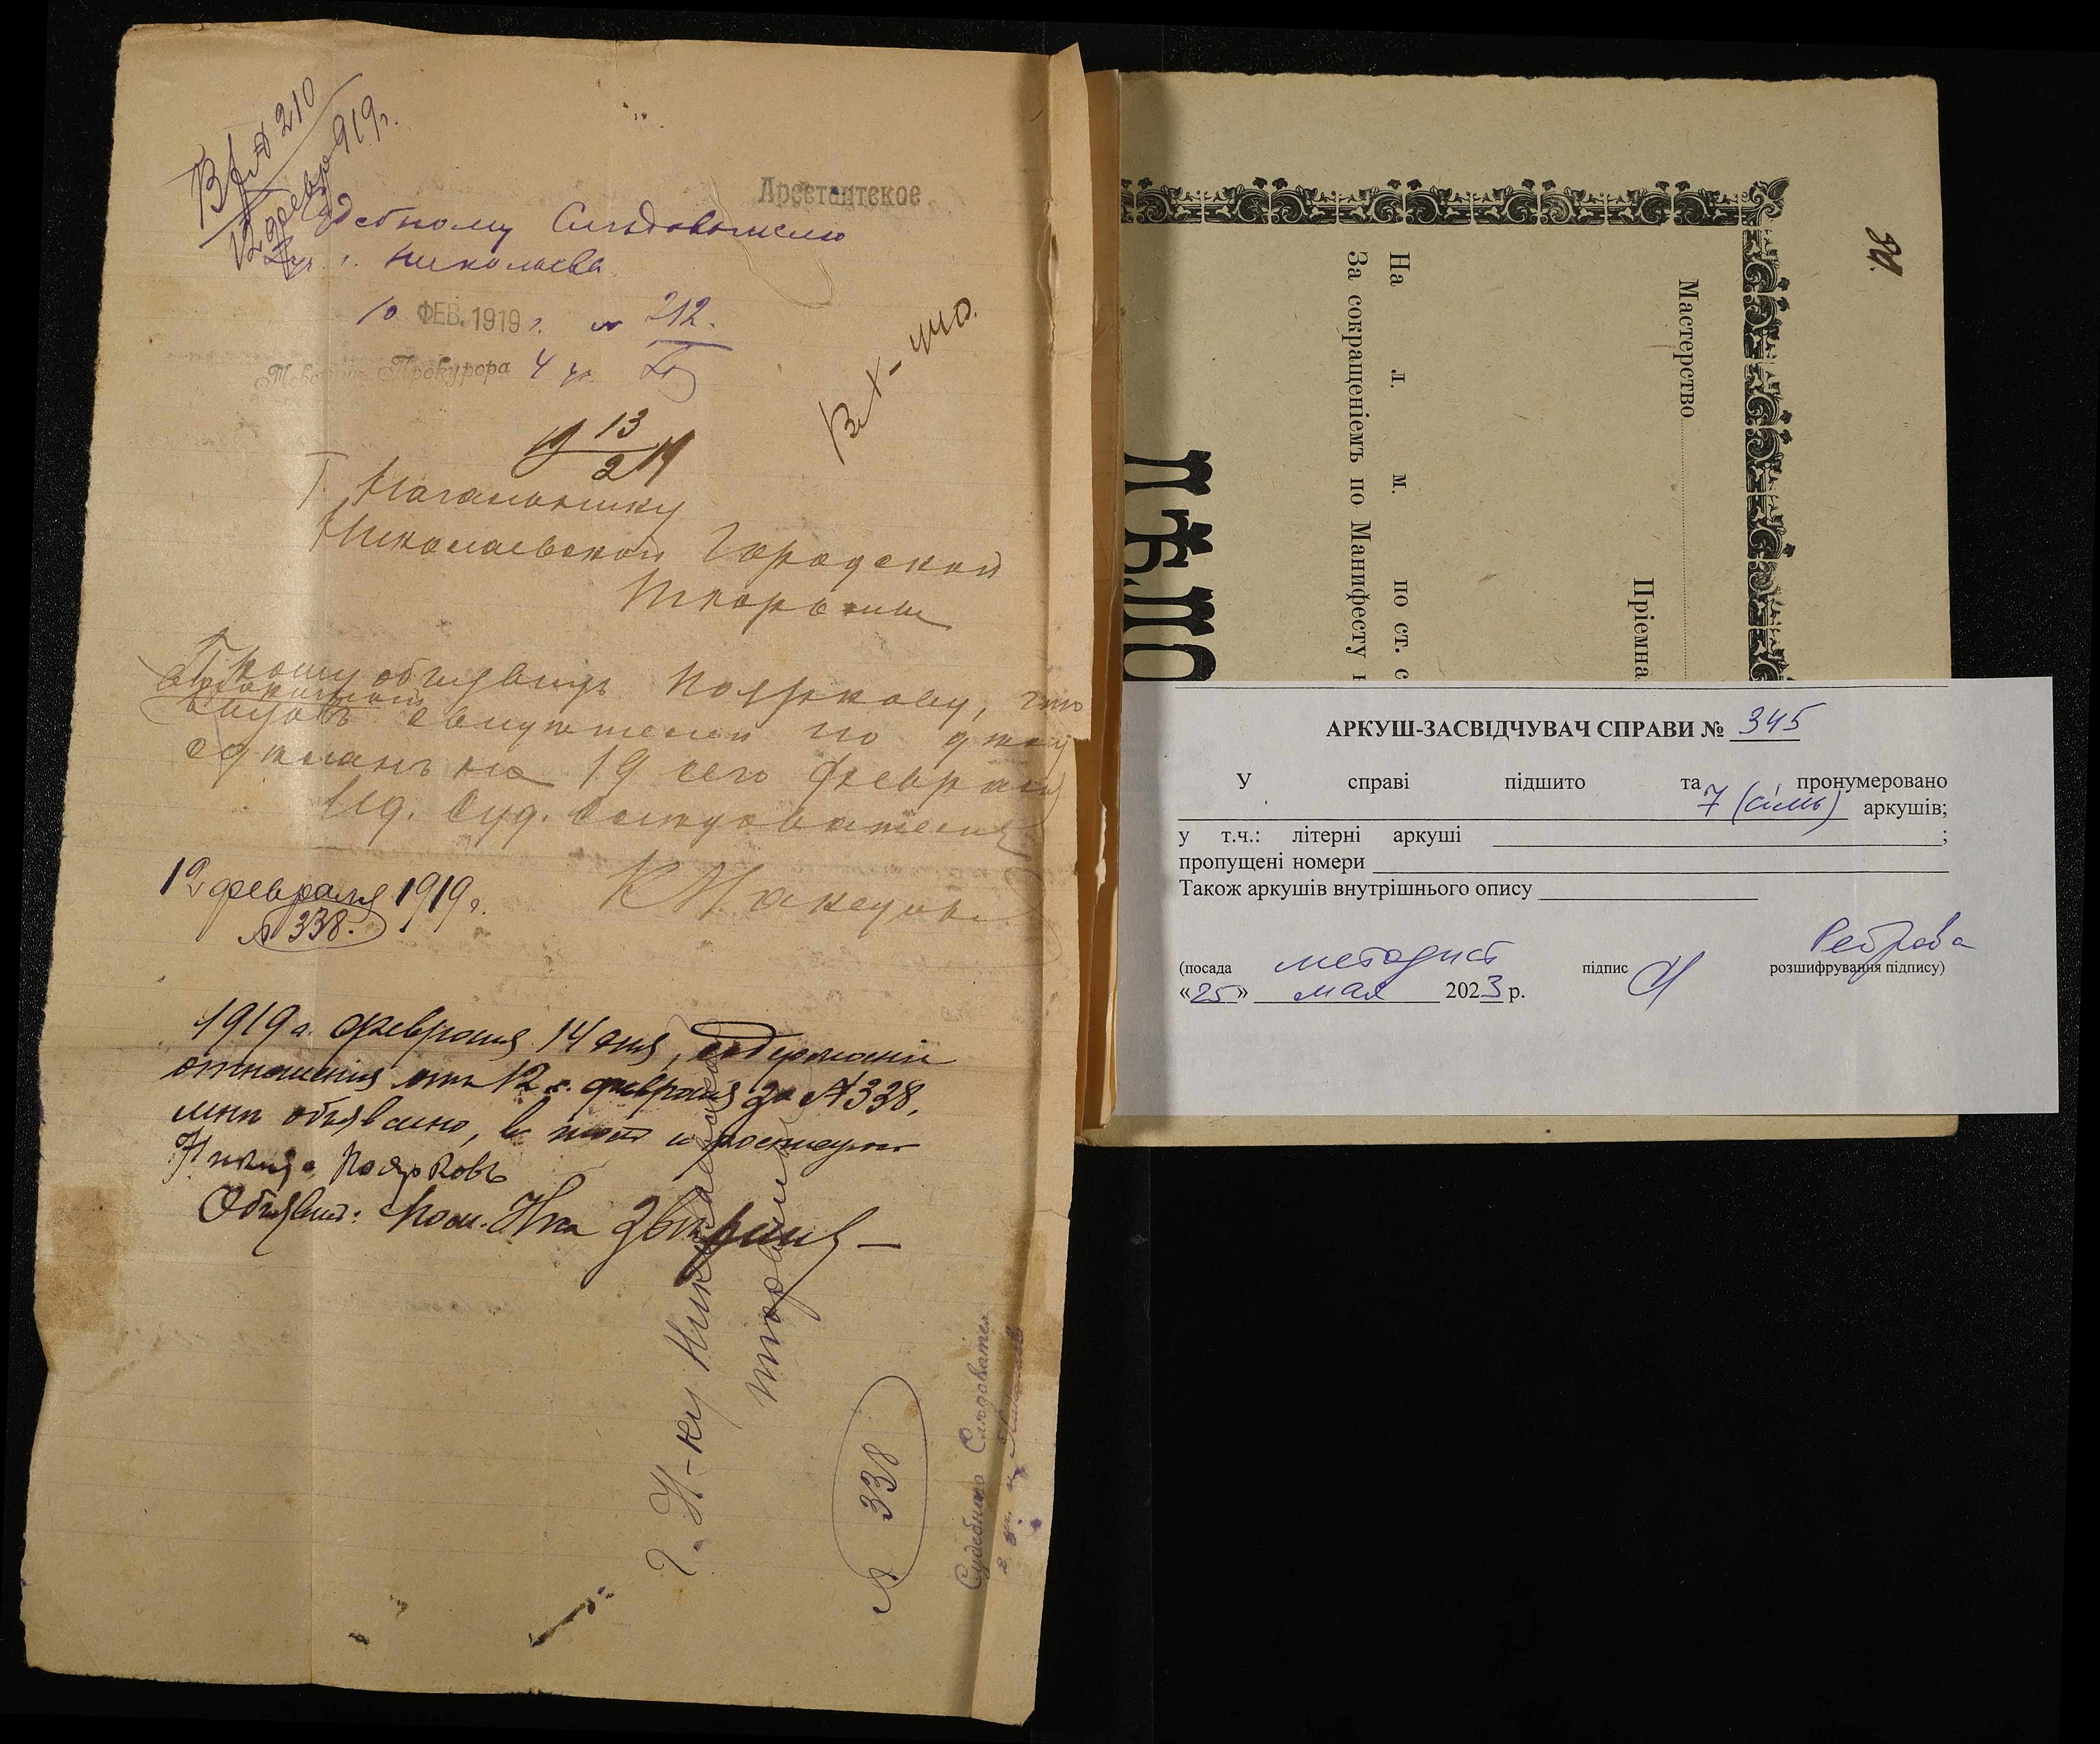 Вх. № 210
12 февр 919 г.
Арестантское
Судебному Следователю
2 уч. г. Николаева
10 ФЕВ. 1919 г. № 212.
Товарищ Прокурора 4 уч.
19 13/2 19
Г. Начальнику
Николаевской Городской
Тюрьмы
Прошу объявить Пояркову, что
вызовъ свидѣтелей по дѣлу
сдѣланъ на 19 сего февраля
Ид. Суд. Слѣдователя
12 февраля 1919 г.
№ 338.
1919 г. февраля 14 дня, содержаніе
отношенія отъ 12 с. февраля за № 338,
мнѣ объявлено, въ томъ и росписуюсь
Поярковъ
Объявил: Пом. Н-ка
Г. Н-ку Николаевской
тюрьмы
№ 338
Судебного Следователя
2 уч. г. Николаева
ДѢЛО
На л. м. по ст. с
За сокращеніемъ по Манифесту
Мастерство
Пріемна
АРКУШ-ЗАСВІДЧУВАЧ СПРАВИ № 345
У справі підшито та пронумеровано
7 (сімь) аркушів;
у т.ч.: літерні аркуші ;
пропущені номери
Також аркушів внутрішнього опису
Реброва
(посада методист підпис розшифрування підпису)
«25» мая 2023 р.